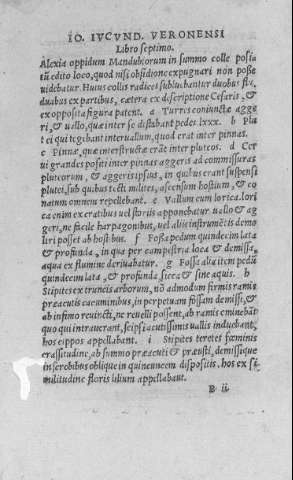 IO. IVCVND. VERONENSI
Libro septimo.
Alexia oppidum Mandubiorum in summo colle positũ
edito loco, quod nisi obsidione expugnari non posse
uidebatur. Huius collis radices subluebantur duobus flu,
duabus ex partibus, cætera ex descriptione Cesaris, &
ex opposita figura patent. a Turres coniunctæ agge
ri, & uallo, quæ inter se distabant pedes lxxx. b Plu
tei qui tegebant interuallum, quod erat inter pinnas.
c Pinnæ, quæ interstructæ erãt inter pluteos. d Cer
ui grandes positi inter pinnas aggeris ad commissuras
pluteorum, & aggeris ipsius, in quibus erant suspensi
plutei, sub quibus tecti milites, ascensum hostium, & co
natum omnem repellebant. e Vallum cum lorica. lori
ca enim ex cratibus uel storiis apponebatur uallo & ag
geri, ne facile harpagonibus, uel aliis instrumẽtis demo
liri posset ab hostibus. f Fossa pedum quindecim lata
& profunda, in qua per campestria loca & demissa,
aqua ex flumine deriuabatur. g Fossa alia item pedũ
quindecim lata, & profunda sicca & sine aquis. h
Stipites ex truncis arborum, nõ admodum firmis ramis
præacutis cacuminibus, in perpetuam fossam demissi, &
ab infimo reuincti, ne reuelli possent, ab ramis eminebãt
quo qui intrauerant, seipsi acutissimis uallis induebant,
hos cippos appellabant. i Stipites teretes fœminis
crassitudine, ab summo præacuti & præusti, demissique
in scrobibus oblique in quincuncem dispositis. hos ex si
militudine floris lilium appellabant.
B ii